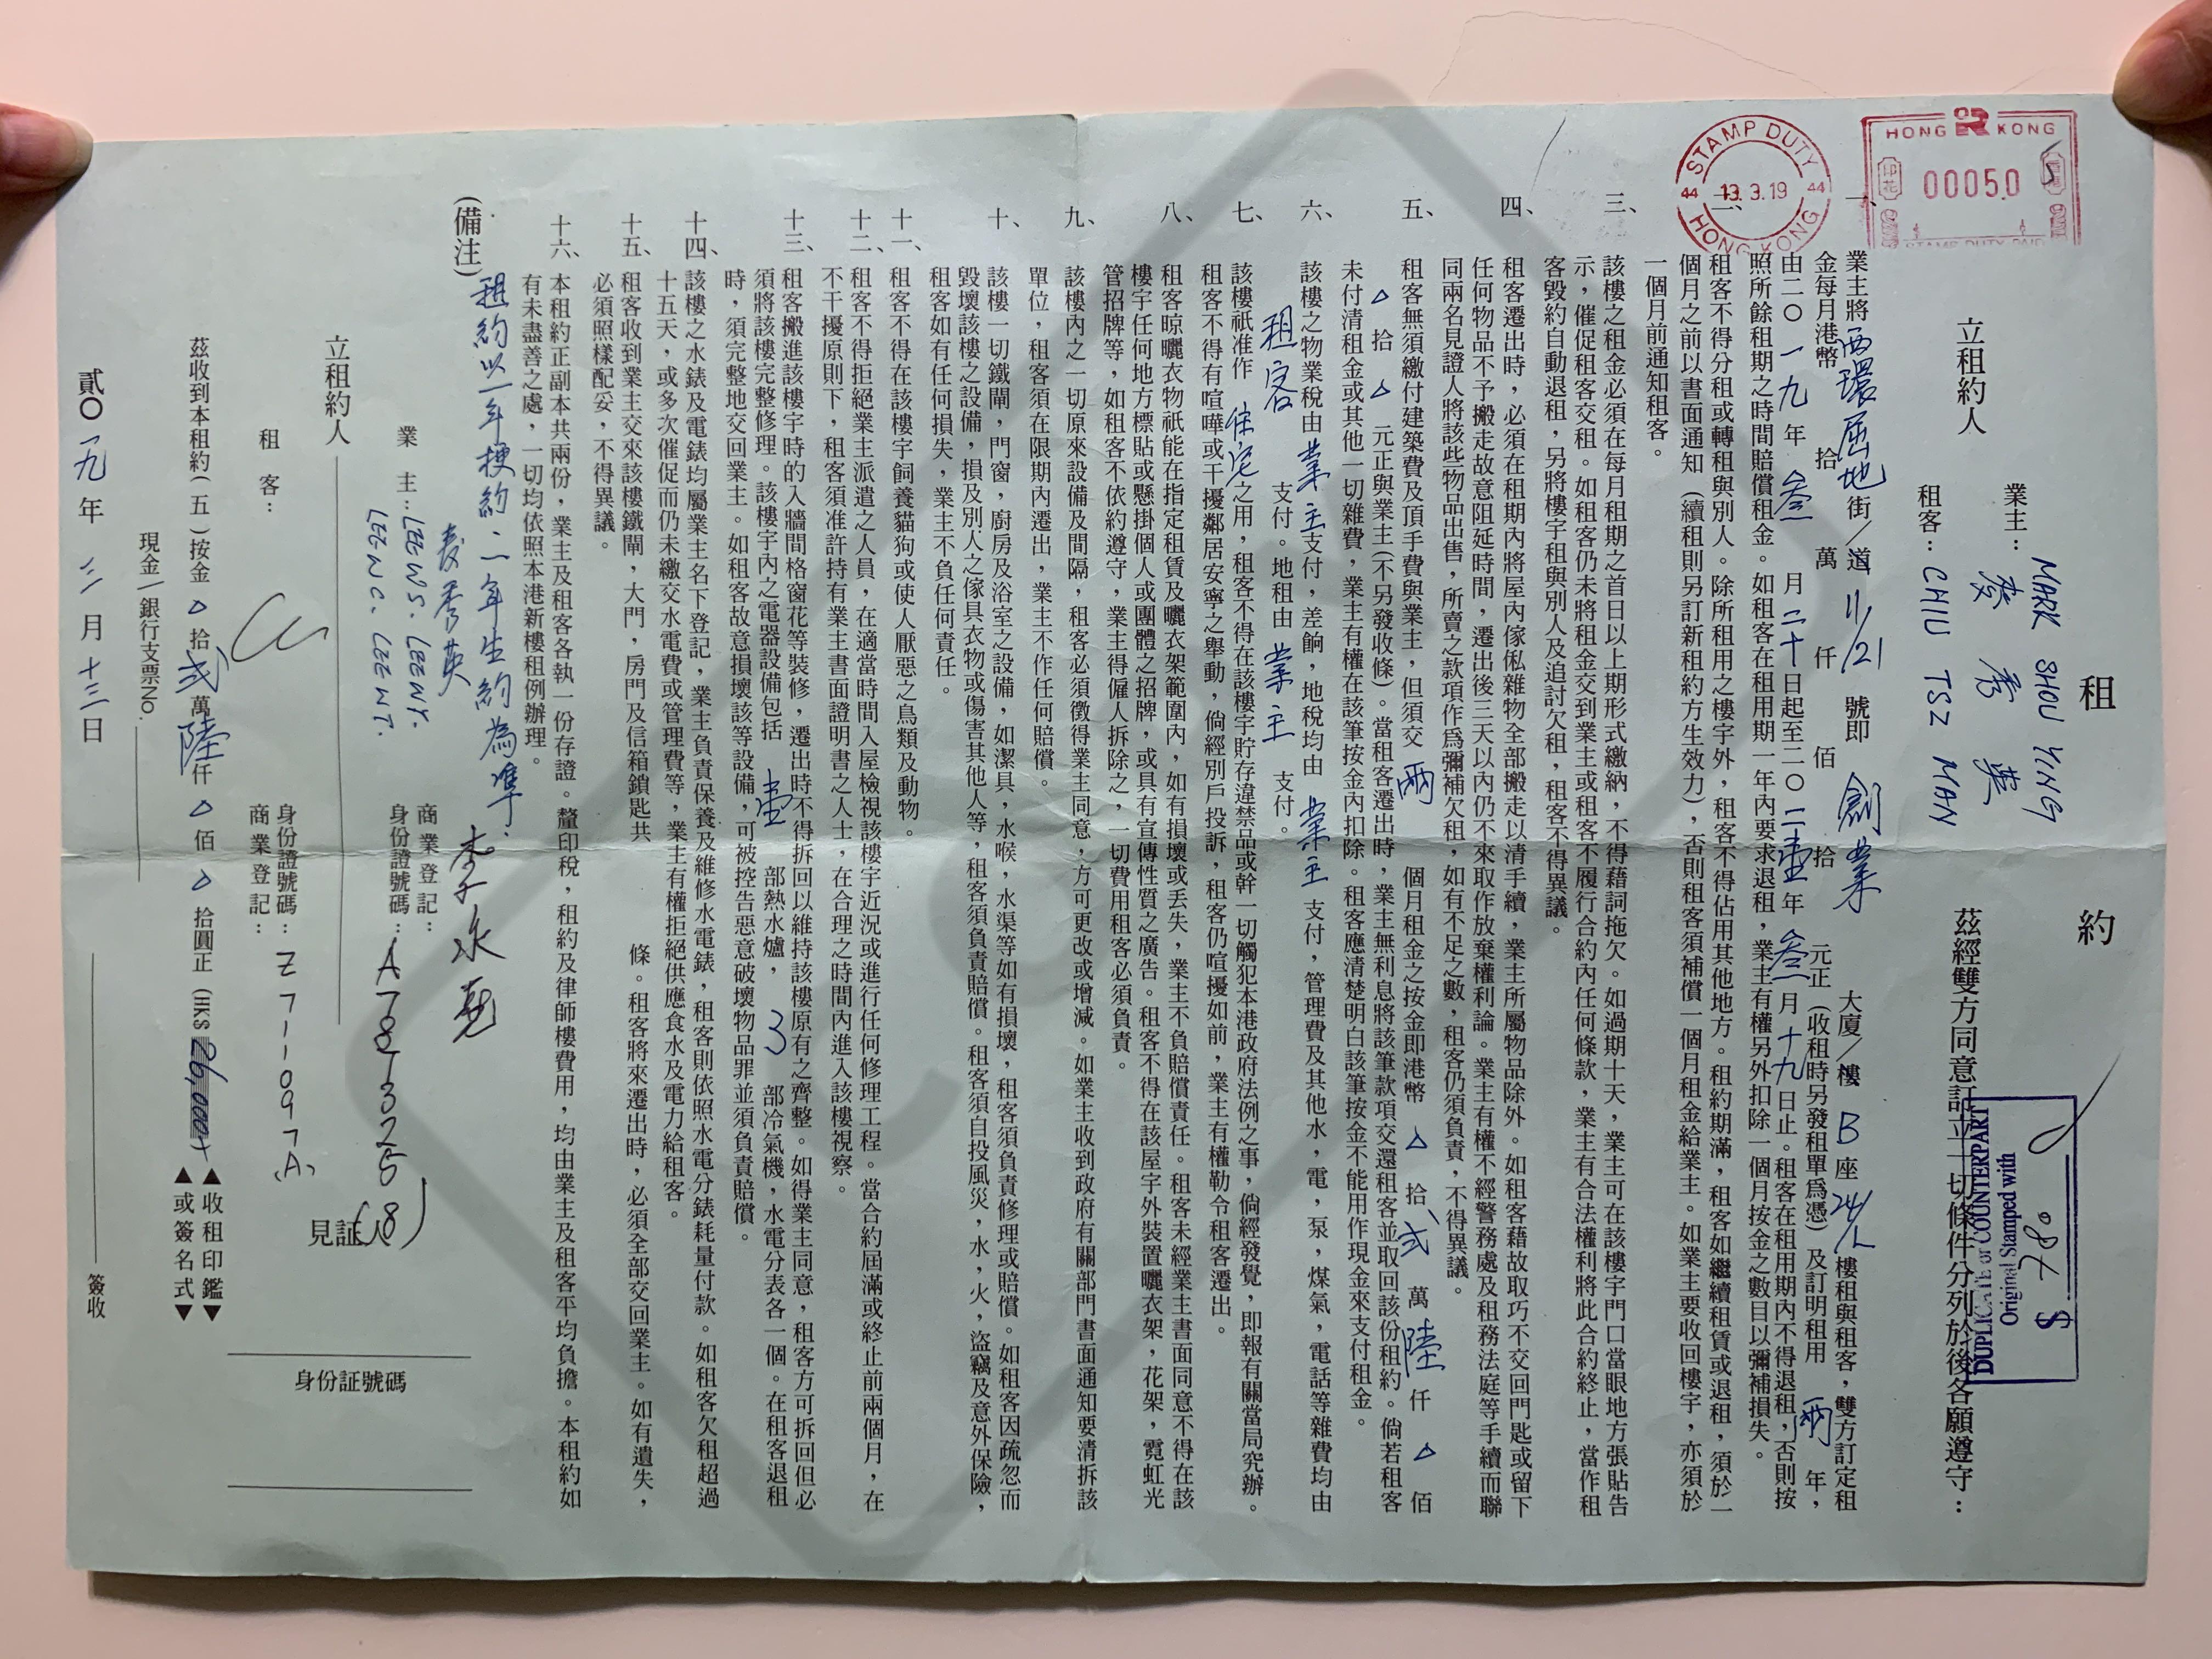 租 約
HONG KONG
0005.0
STAMP DUTY PAID
STAMP DUTY
13.3.19
HONG KONG
44 44
$ 084
DUPLICATE or COUNTERPART
Original Stamped with
立租約人
業主：MARK SHOU YING
麥秀英
租客：CHIU TSZ MAN
茲經雙方同意訂立一切條件分列於後各願遵守：
一、業主將西環屈地街／道11/21號即創業大廈／樓B座24/L樓租與租客，雙方訂定租
金每月港幣 拾 萬 仟 佰 拾 元正（收租時另發租單爲憑）及訂明租用兩年，
由二〇一九年叁月二十日起至二〇二壹年叁月十九日止。租客在租用期內不得退租，否則按
照所餘租期之時間賠償租金。如租客在租用期一年內要求退租，業主有權另外扣除一個月按金之數目以彌補損失。
二、租客不得分租或轉租與別人。除所租用之樓宇外，租客不得佔用其他地方。租約期滿，租客如繼續租賃或退租，須於一
個月之前以書面通知（續租則另訂新租約方生效力），否則租客須補償一個月租金給業主。如業主要收回樓宇，亦須於
一個月前通知租客。
三、該樓之租金必須在每月租期之首日以上期形式繳納，不得藉詞拖欠。如過期十天，業主可在該樓宇門口當眼地方張貼告
示，催促租客交租。如租客仍未將租金交到業主或租客不履行合約內任何條款，業主有合法權利將此合約終止，當作租
客毀約自動退租，另將樓宇租與別人及追討欠租，租客不得異議。
四、租客遷出時，必須在租期內將屋內傢俬雜物全部搬走以清手續，業主所屬物品除外。如租客藉故取巧不交回門匙或留下
任何物品不予搬走故意阻延時間，遷出後三天以內仍不來取作放棄權利論。業主有權不經警務處及租務法庭等手續而聯
同兩名見證人將該些物品出售，所賣之款項作爲彌補欠租，如有不足之數，租客仍須負責，不得異議。
五、租客無須繳付建築費及頂手費與業主，但須交兩個月租金之按金即港幣△拾弍萬陸仟△佰
△拾△元正與業主（不另發收條）。當租客遷出時，業主無利息將該筆款項交還租客並取回該份租約。倘若租客
未付清租金或其他一切雜費，業主有權在該筆按金內扣除。租客應清楚明白該筆按金不能用作現金來支付租金。
六、該樓之物業稅由業主支付，差餉，地稅均由業主支付，管理費及其他水，電，泵，煤氣，電話等雜費均由
租客支付。地租由業主支付。
七、該樓祇准作住宅之用，租客不得在該樓宇貯存違禁品或幹一切觸犯本港政府法例之事，倘經發覺，即報有關當局究辦。
租客不得有喧嘩或干擾鄰居安寧之舉動，倘經別戶投訴，租客仍喧擾如前，業主有權勒令租客遷出。
八、租客晾曬衣物祇能在指定租賃及曬衣架範圍內，如有損壞或丟失，業主不負賠償責任。租客未經業主書面同意不得在該
樓宇任何地方標貼或懸掛個人或團體之招牌，或具有宣傳性質之廣告。租客不得在該屋宇外裝置曬衣架，花架，霓虹光
管招牌等，如租客不依約遵守，業主得僱人拆除之，一切費用租客必須負責。
九、該樓內之一切原來設備及間隔，租客必須徵得業主同意，方可更改或增減。如業主收到政府有關部門書面通知要清拆該
單位，租客須在限期內遷出，業主不作任何賠償。
十、該樓一切鐵閘，門窗，廚房及浴室之設備，如潔具，水喉，水渠等如有損壞，租客須負責修理或賠償。如租客因疏忽而
毀壞該樓之設備，損及別人之傢具衣物或傷害其他人等，租客須負責賠償。租客須自投風災，水，火，盜竊及意外保險，
租客如有任何損失，業主不負任何責任。
十一、租客不得在該樓宇飼養貓狗或使人厭惡之鳥類及動物。
十二、租客不得拒絕業主派遣之人員，在適當時間入屋檢視該樓宇近況或進行任何修理工程。當合約屆滿或終止前兩個月，在
不干擾原則下，租客須准許持有業主書面證明書之人士，在合理之時間內進入該樓視察。
十三、租客搬進該樓宇時的入牆間格窗花等裝修，遷出時不得拆回以維持該樓原有之齊整。如得業主同意，租客方可拆回但必
須將該樓完整修理。該樓宇內之電器設備包括壹部熱水爐，3部冷氣機，水電分表各一個。在租客退租
時，須完整地交回業主。如租客故意損壞該等設備，可被控告惡意破壞物品罪並須負責賠償。
十四、該樓之水錶及電錶均屬業主名下登記，業主負責保養及維修水電錶，租客則依照水電分錶耗量付款。如租客欠租超過
十五天，或多次催促而仍未繳交水電費或管理費等，業主有權拒絕供應食水及電力給租客。
十五、租客收到業主交來該樓鐵閘，大門，房門及信箱鎖匙共 條。租客將來遷出時，必須全部交回業主。如有遺失，
必須照樣配妥，不得異議。
十六、本租約正副本共兩份，業主及租客各執一份存證。釐印稅，租約及律師樓費用，均由業主及租客平均負擔。本租約如
有未盡善之處，一切均依照本港新樓租例辦理。
(備注) 租約以一年梗約二年生約為準.
立租約人
業主：LEE W S. LEE N Y.
麥秀英
LEE W C. LEE W T.
商業登記：
身份證號碼：A781325(8)
租客：
身份證號碼：Z711097(A)
商業登記：
見証人
身份証號碼
茲收到本租約（五）按金△拾弍萬陸仟△佰△拾圓正 (HK$ 26,000)
▲收租印鑑▼
▲或簽名式▼
現金／銀行支票No.
簽收
貳〇一九年三月十三日
COPY